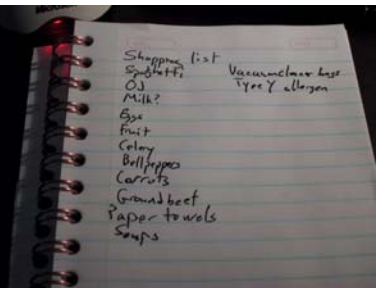 Shopping list
Spaghetti
OJ
Milk?
Eggs
Fruit
Celery
Bellpeppers
Carrots
Ground beef
Paper towels
Soups
Vacuumcleaner bags
Type Y allergen